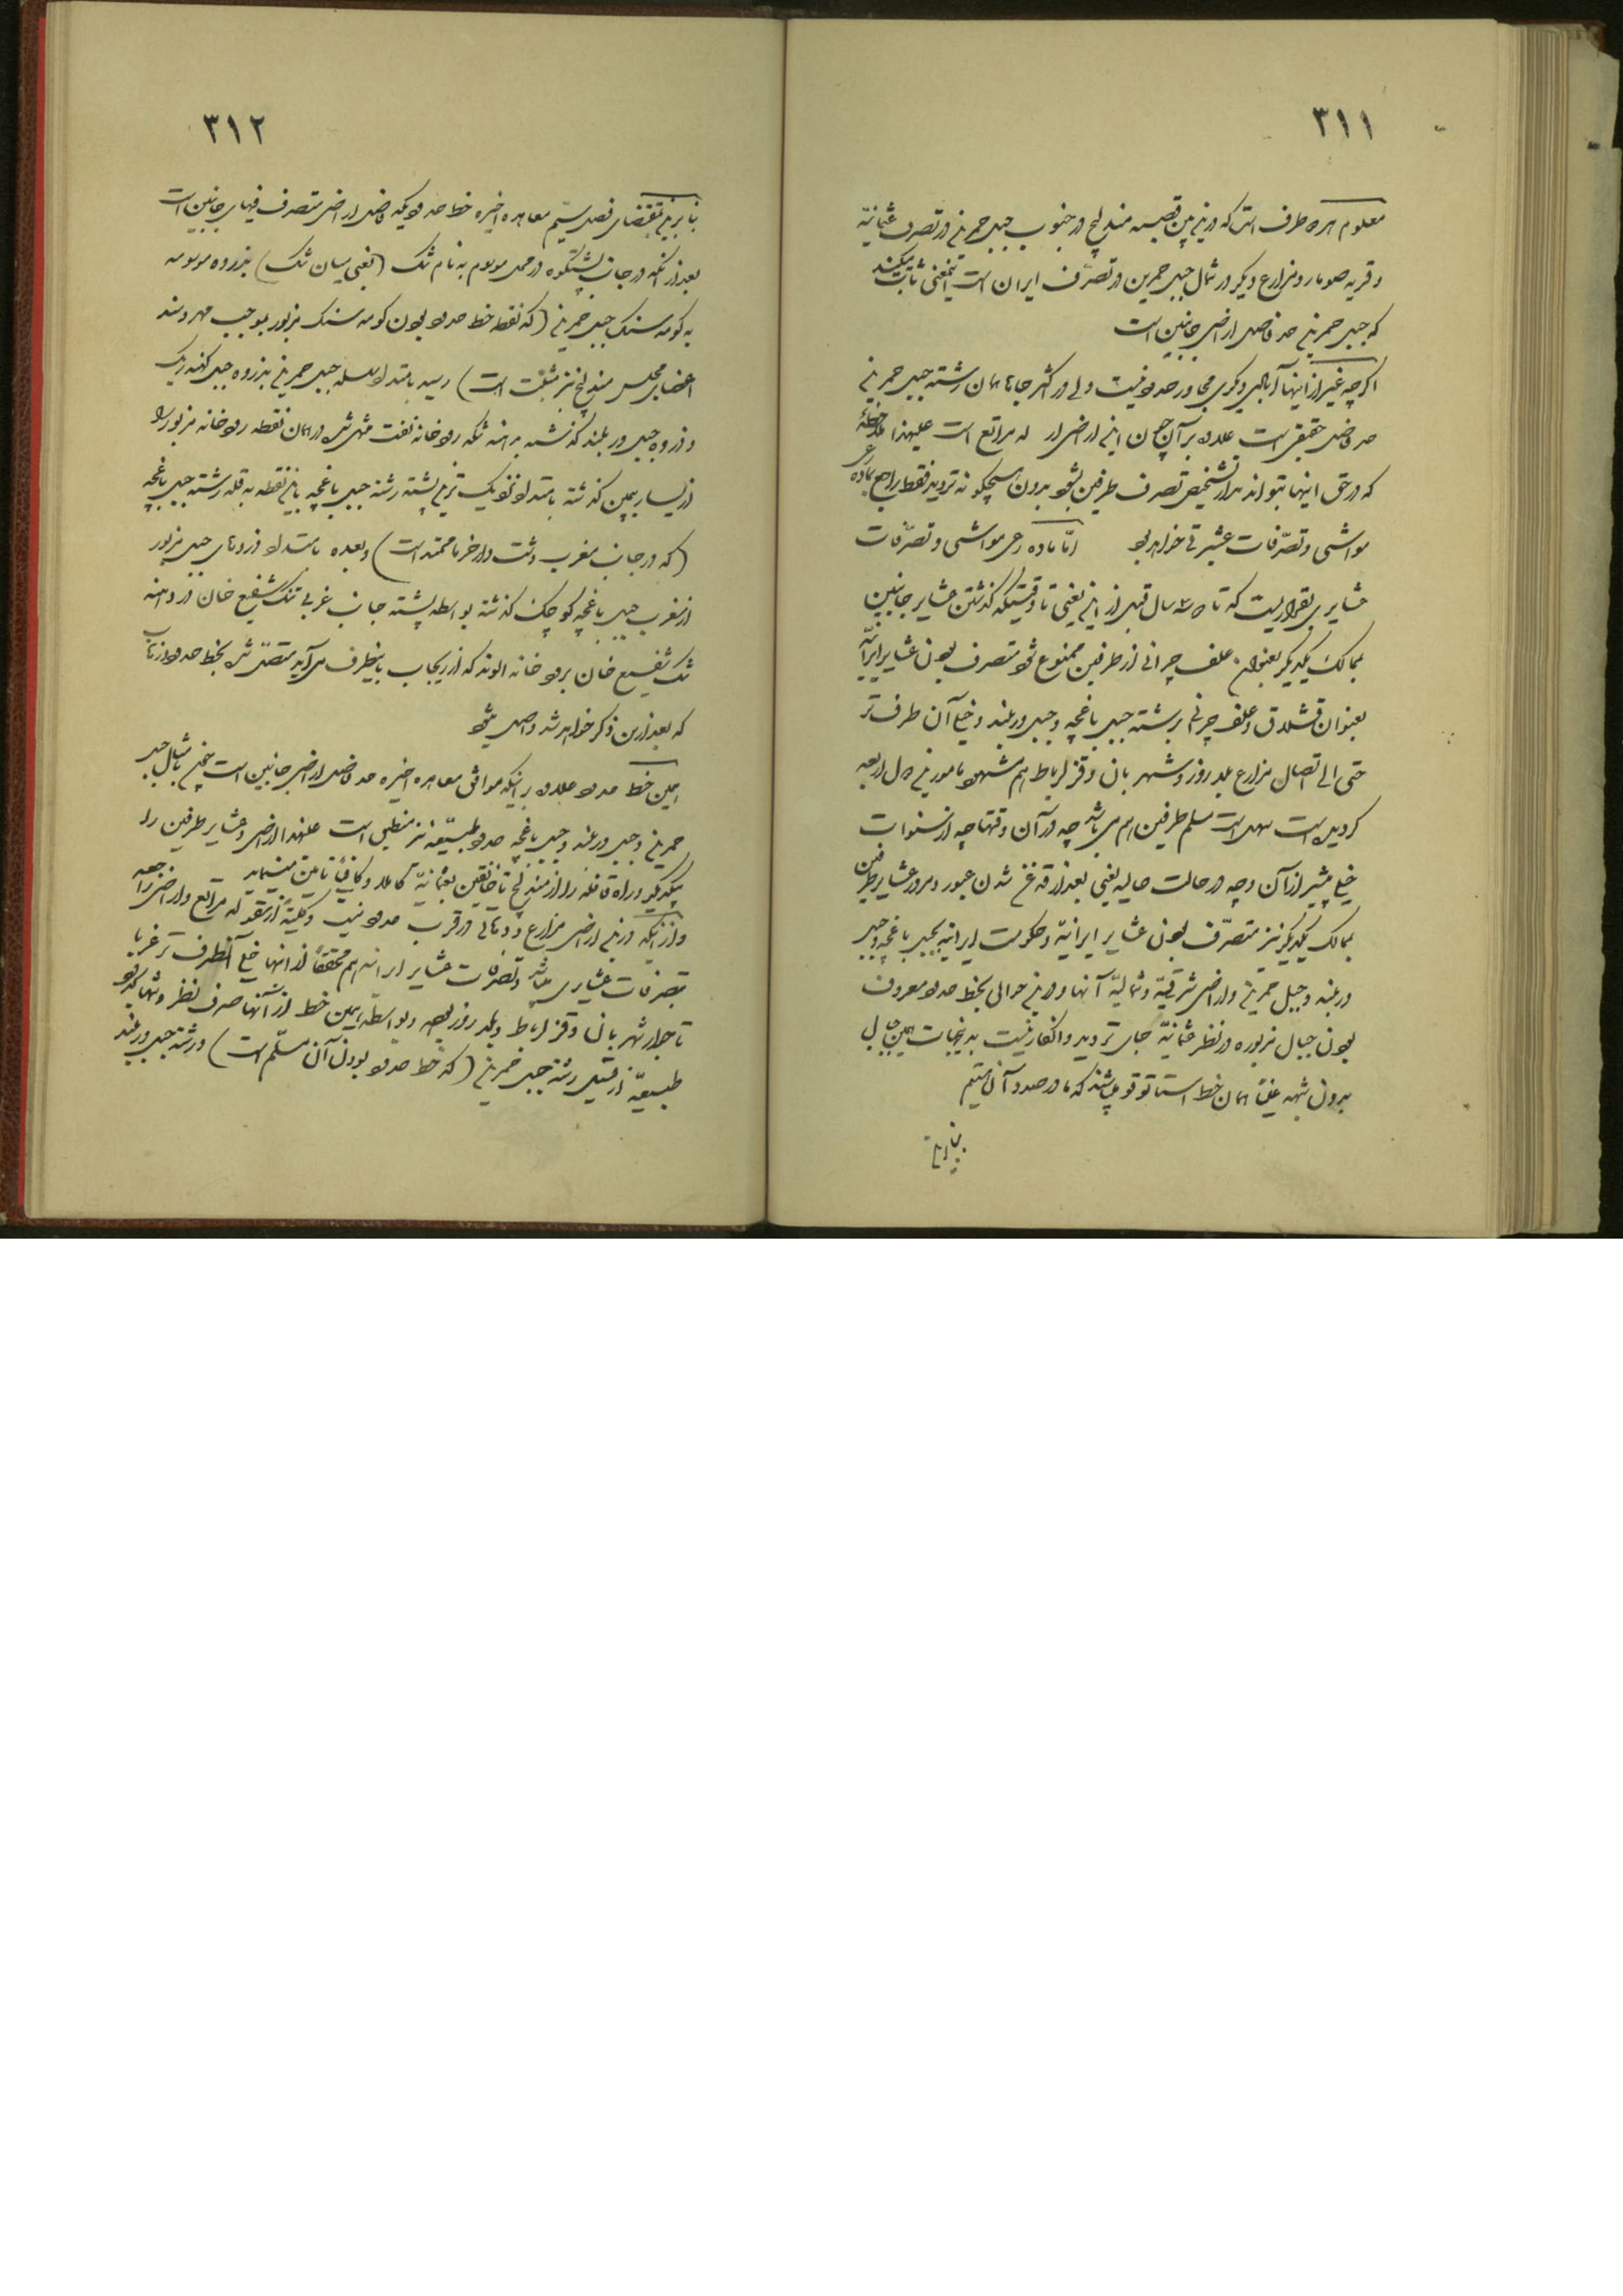 ۳۱۱
معلوم هر دو طرف است که در بین قصبه مندلیج در جنوب جبل حمرین در تصرف عثمانیّه
و قریه صومار و مزارع دیگر در شمال جبل حمرین در تصرّف ایران است اینمعنی ثابت میکند
که جبل حمرین حد فاصل اراضی جانبین است
اگرچه غیر از اینها آبادی دیگری مجاور حدود نیست ولی در اکثر جاها همان رشته جبل حمرین
حد فاصل حقیقی است علاوه بر آن چون این اراضی مراتع است علیهذا ملاحظهٔ
که در حق اینها بتواند مدار تشخیص تصرف طرفین بشود بدون هیچگونه تردید فقط راجع بماده رعی
مواشی و تصرّفات عشیرتی خواهد بود امّا ماده رعی مواشی و تصرّفات
عشایری بقراریست که تا سال قبل از این یعنی تا وقتیکه گذشتن عشایر جانبین
بممالک یکدیگر بعنوان علف چرانی از طرفین ممنوع شود متصرف بودن عشایر ایرانیّه
بعنوان قشلاق و علف چرانی برشته جبل باغچه و جبل در بلند و خیلی آن طرف تر
حتی الی اتصال مزارع بلدروز و شهربان و قزلرباط هم مشهود مامورین دول اربعه
گردیده است مسلم طرفین هم می باشد چه در آن وقتها چه در سنوات
خیلی پیشتر از آن و چه در حالت حالیه یعنی بعد از قدغن شدن عبور و مرور عشایر طرفین
بممالک یکدیگر نیز متصرّف بودن عشایر ایرانیّه و حکومت ایرانیه بجبل باغچه و جبل
در بلند و جبل حمرین و اراضی شرقیّه و شمالیّه آنها و در این حوالی بخط حدود معروف
بودن جبال مزبوره در نظر عثمانیّه جای تردید و انکار نیست بدینجهات همین جبال
بدون شبهه عیناً همان خط استاتوقو میباشند که ما در صدد آن هستیم
بنابراین
۳۱۲
بنابراین بمقتضای فصل سیّم معاهده اخیره خط حدودیکه فاصل اراضی متصرف فیهای جانبین است
بعد از آنکه در جانب پشتکوه در محل موسوم به نام تنک (یعنی میان تنک) بذروه موسومه
به کومه سنک جبل حمرین (که نقطه خط حدود بودن کومه سنک مزبور بموجب مهر و سند
اعضای مجلس مندلیج نیز مثبت است) رسید بامتداد سلسله جبل حمرین بذروه جبل کهنه ریک
و ذروه جبل در بلند گذشته بدهنه تنکه رودخانه نفت منتهی شده در همان نقطه رودخانه مزبور را
از یسار بیمین گذشته بامتداد نزدیک ترین پشته رشته جبل باغچه باین نقطه به قله رشته جبل باغچه
(که در جانب مغرب دشت دارخرما ممتد است) و بعده بامتداد ذروه‌های جبل مزبور
از مغرب جبل باغچه کوچک گذشته بواسطه پشته جانب غربی تنک شفیع خان در دهنه
تنک شفیع خان برودخانه الوند که از ریجاب باینطرف می آید متصل شده بخط حدود ذهاب
که بعد ازین ذکر خواهد شد واصل میشود
همین خط حدود علاوه بر اینکه موافق معاهده اخیره حد فاصل اراضی جانبین است
حمرین و جبل در بلند و جبل باغچه حدود طبیعیّه نیز منطبق است علیهذا اراضی و عشایر طرفین را
از یکدیگر و راه قافله را از مندلیج تا خانقین بعثمانیّه کاملاً و کافیاً تامین مینماید
و از آنکه در این اراضی مزارع و دهاتی در قرب حدود نیست و کلیّةً از مراتع و اراضی راجعه
بتصرفات عشایری میباشد و تصرّفات عشایر ایرانیه هم محققاً از اینها خیلی آنطرف تر غربا
تا جوار شهربان و قزلرباط و بلدروز بوده و بواسطه همین خط از آنها صرف نظر و تنها بحدود
طبیعیّه از قبیل رشته جبل حمرین (که خط حدود بودن آن مسلّم است) و رشته جبل در بلند